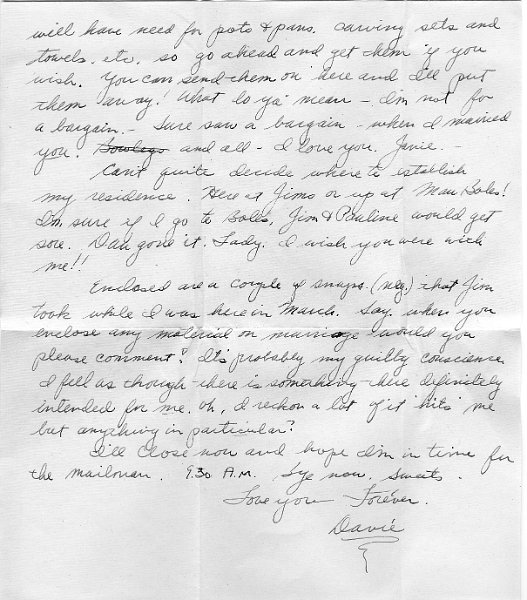 will have need for pots & pans, carving sets and
towels, etc, so go ahead and get them if you
wish. You can send them on here and I'll put
them away! What lo ya mean - I'm not for
a bargain. - Sure saw a bargain - when I married
you. Bowlegs and all - I love you, Janie. -
Can't quite decide where to establish
my residence. Here at Jims or up at Maw Boles!
I'm sure if I go to Boles, Jim & Pauline would get
sore. Dau gone it, Lady, I wish you were with
me!!
Enclosed are a couple of snaps. (neg.) that Jim
took while I was here in March. Say, when you
enclose any material on marriage would you
please comment? It's probably my guilty conscience
I fell as though there is something there definitely
intended for me. Oh, I reckon a lot of it "hits" me
but anything in particular?
I'll close now and hope I'm in time for
the mailman. 9:30 A.M. 'Bye now, Sweets.
Love you Forever.
Davie